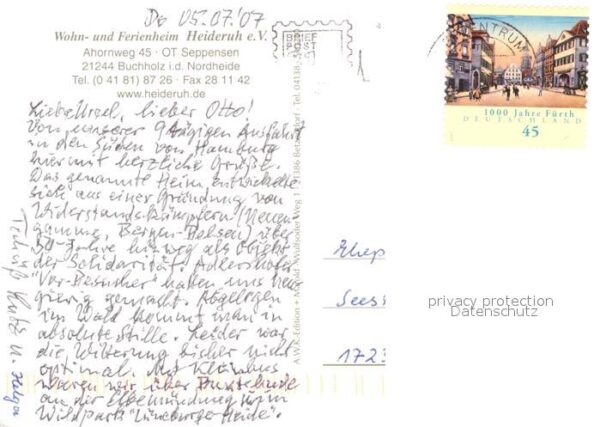 Do 05.07.'07
Wohn- und Ferienheim Heideruh e.V.
Ahornweg 45 · OT Seppensen
21244 Buchholz i.d. Nordheide
Tel. (0 41 81) 87 26 · Fax 28 11 42
www.heideruh.de
Liebe Ursel, lieber Otto!
Von unserer 9tägigen Ausfahrt
in den Süden von Hamburg
hiermit herzliche Grüße.
Das genannte Heim entwickelte
sich aus einer Gründung von
Widerstandskämpfern (Neuen-
gamme, Bergen-Belsen) über
50 Jahre hinweg als Objekt
der Solidarität. Adlershofer
"Vor-Besucher" haben uns neu-
gierig gemacht. Abgelegen
im Wald kommt man in
absolute Stille. Leider war
die Witterung bisher nicht
optimal. Mit Kleinbus
waren wir über Buxtehude
an der Elbemündung u. im
Wildpark "Lüneburger Heide".
Tschüß Kurt u. Helga
BRIEF
POST
ZENTRUM
1000 Jahre Fürth
DEUTSCHLAND
45
Ehep
Seess
1723
privacy protection
Datenschutz